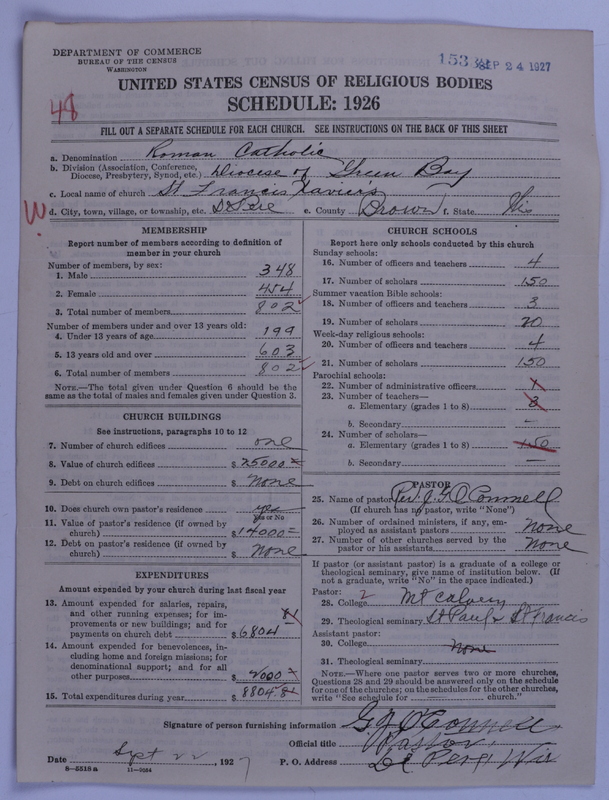 DEPARTMENT OF COMMERCE
BUREAU OF THE CENSUS
WASHINGTON
SEP 24 1927
UNITED STATES CENSUS OF RELIGIOUS BODIES
SCHEDULE: 1926
48
FILL OUT A SEPARATE SCHEDULE FOR EACH CHURCH. SEE INSTRUCTIONS ON THE BACK OF THIS SHEET
a. Denomination Roman Catholic
b. Division (Association, Conference, Diocese, Presbytery, Synod, etc.) Diocese of Green Bay
c. Local name of church St Francis Xaviers
W
d. City, town, village, or township, etc. De Pere e. County Brown f. State Wis
MEMBERSHIP
Report number of members according to definition of
member in your church
Number of members, by sex:
1. Male 348
2. Female 454
3. Total number of members 802
Number of members under and over 13 years old:
4. Under 13 years of age 199
5. 13 years old and over 603
6. Total number of members 802
NOTE.—The total given under Question 6 should be the
same as the total of males and females given under Question 3.
CHURCH BUILDINGS
See instructions, paragraphs 10 to 12
7. Number of church edifices one
8. Value of church edifices $25000
9. Debt on church edifices $ None
10. Does church own pastor's residence yes
Yes or No
11. Value of pastor's residence (if owned by
church) $14000
12. Debt on pastor's residence (if owned by
church) $ None
EXPENDITURES
Amount expended by church during last fiscal year
13. Amount expended for salaries, repairs,
and other running expenses; for im-
provements or new buildings; and for
payments on church debt $6804
14. Amount expended for benevolences, in-
cluding home and foreign missions; for
denominational support; and for all
other purposes $2000
15. Total expenditures during year $8804
CHURCH SCHOOLS
Report here only schools conducted by this church
Sunday schools:
16. Number of officers and teachers 4
17. Number of scholars 150
Summer vacation Bible schools:
18. Number of officers and teachers 3
19. Number of scholars 20
Week-day religious schools:
20. Number of officers and teachers 4
21. Number of scholars 150
Parochial schools:
22. Number of administrative officers 1
23. Number of teachers—
a. Elementary (grades 1 to 8) 3
b. Secondary —
24. Number of scholars—
a. Elementary (grades 1 to 8) 150
b. Secondary —
PASTOR
25. Name of pastor Rev. J. G. O'Connell
(If church has no pastor, write "None")
26. Number of ordained ministers, if any, em-
ployed as assistant pastors None
27. Number of other churches served by the
pastor or his assistants None
If pastor (or assistant pastor) is a graduate of a college or
theological seminary, give name of institution below. (If
not a graduate, write "No" in the space indicated.)
Pastor:
28. College 2 Mt Calvary
29. Theological seminary St Paul & St Francis
Assistant pastor:
30. College None
31. Theological seminary
NOTE.—Where one pastor serves two or more churches,
Questions 28 and 29 should be answered only on the schedule
for one of the churches; on the schedules for the other churches,
write "See schedule for church."
Signature of person furnishing information G J O'Connell
Official title Pastor
Date Sept 22, 1927 P. O. Address De Pere, Wis
8—5518 a 11—9034